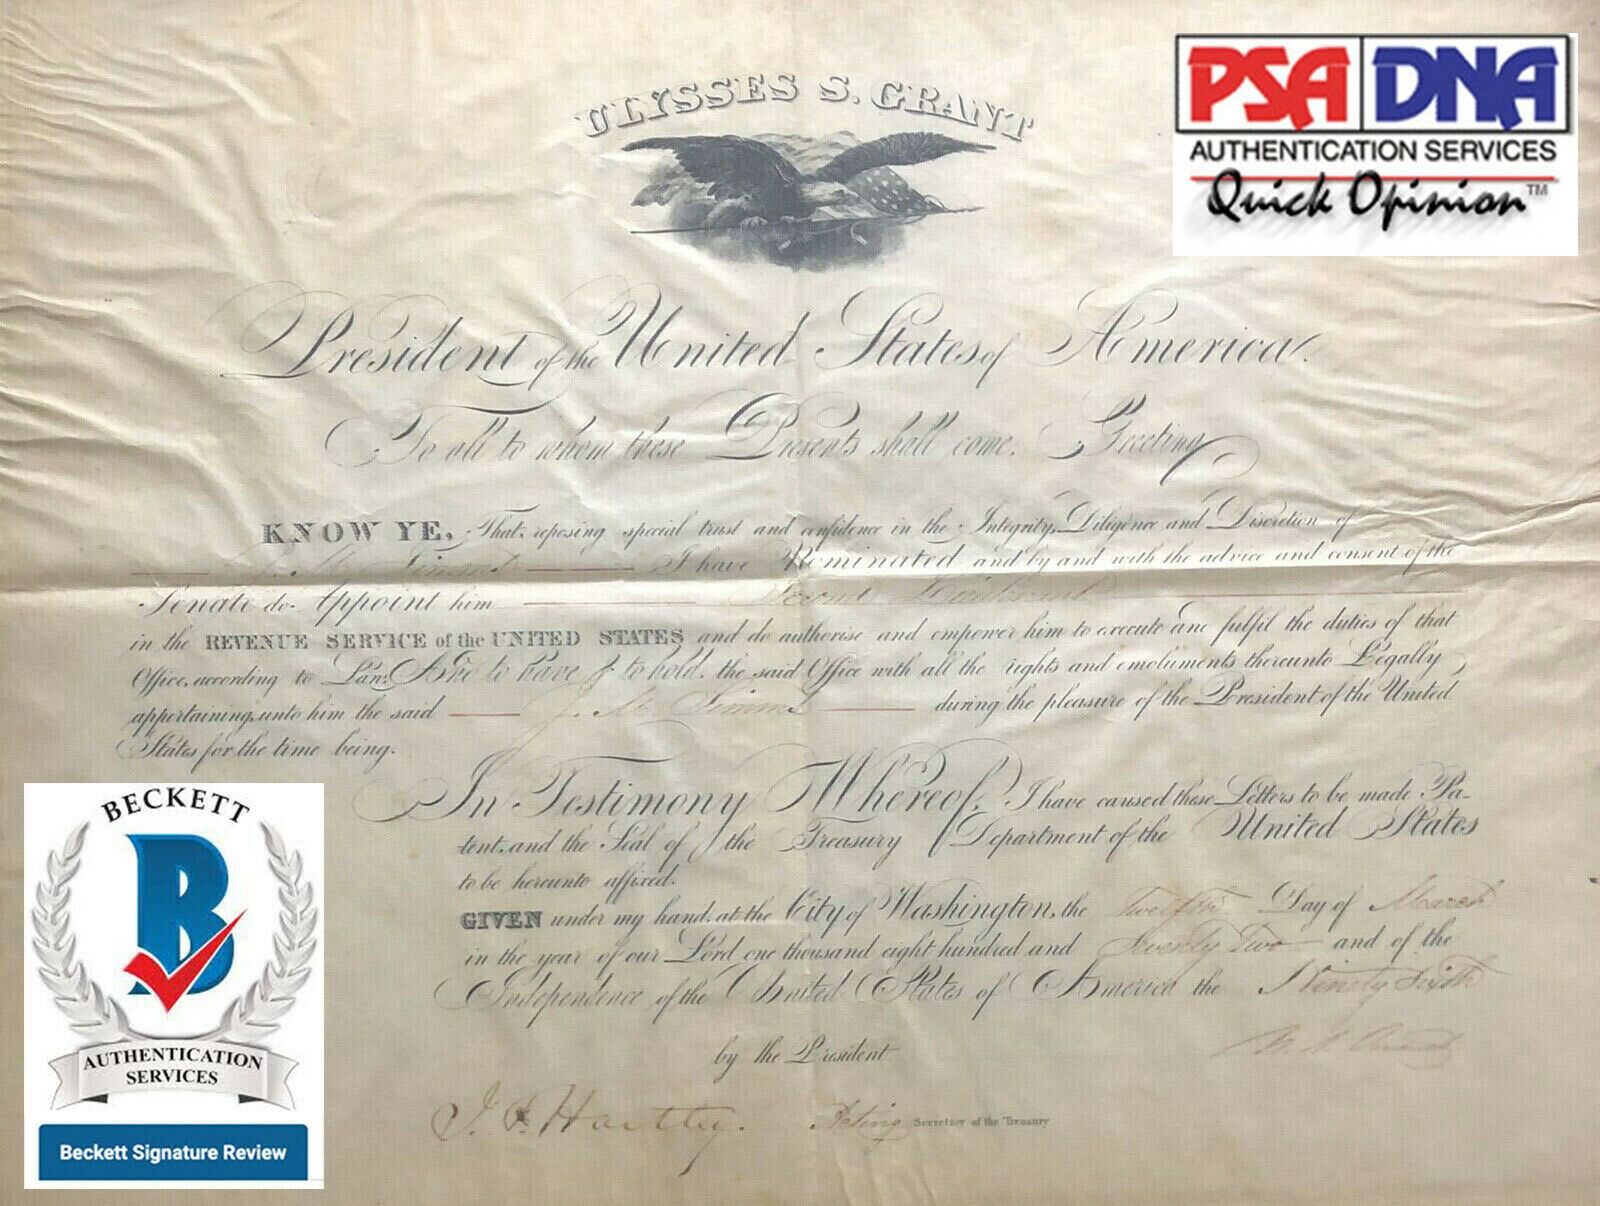 ULYSSES S. GRANT
President of the United States of America.
To all to whom these Presents shall come, Greeting
KNOW YE, That reposing special trust and confidence in the Integrity, Diligence and Discretion of
J. M. Simms I have Nominated and by and with the advice and consent of the
Senate do Appoint him Second Lieutenant
in the REVENUE SERVICE of the UNITED STATES and do authorise and empower him to execute and fulfil the duties of that
Office, according to Law. And to have & to hold, the said Office with all the rights and emoluments thereunto Legally
appertaining, unto him the said J. M. Simms during the pleasure of the President of the United
States for the time being.
In Testimony Whereof, I have caused these Letters to be made Pa-
tent, and the Seal of the Treasury Department of the United States
to be hereunto affixed.
GIVEN under my hand, at the City of Washington, the Twelfth Day of March
in the year of our Lord one thousand eight hundred and Seventy Two and of the
Independence of the United States of America the Ninety Sixth
by the President
U. S. Grant
J. F. Hartley. Acting Secretary of the Treasury
PSA DNA
AUTHENTICATION SERVICES
Quick Opinion™
BECKETT
B
AUTHENTICATION
SERVICES
Beckett Signature Review